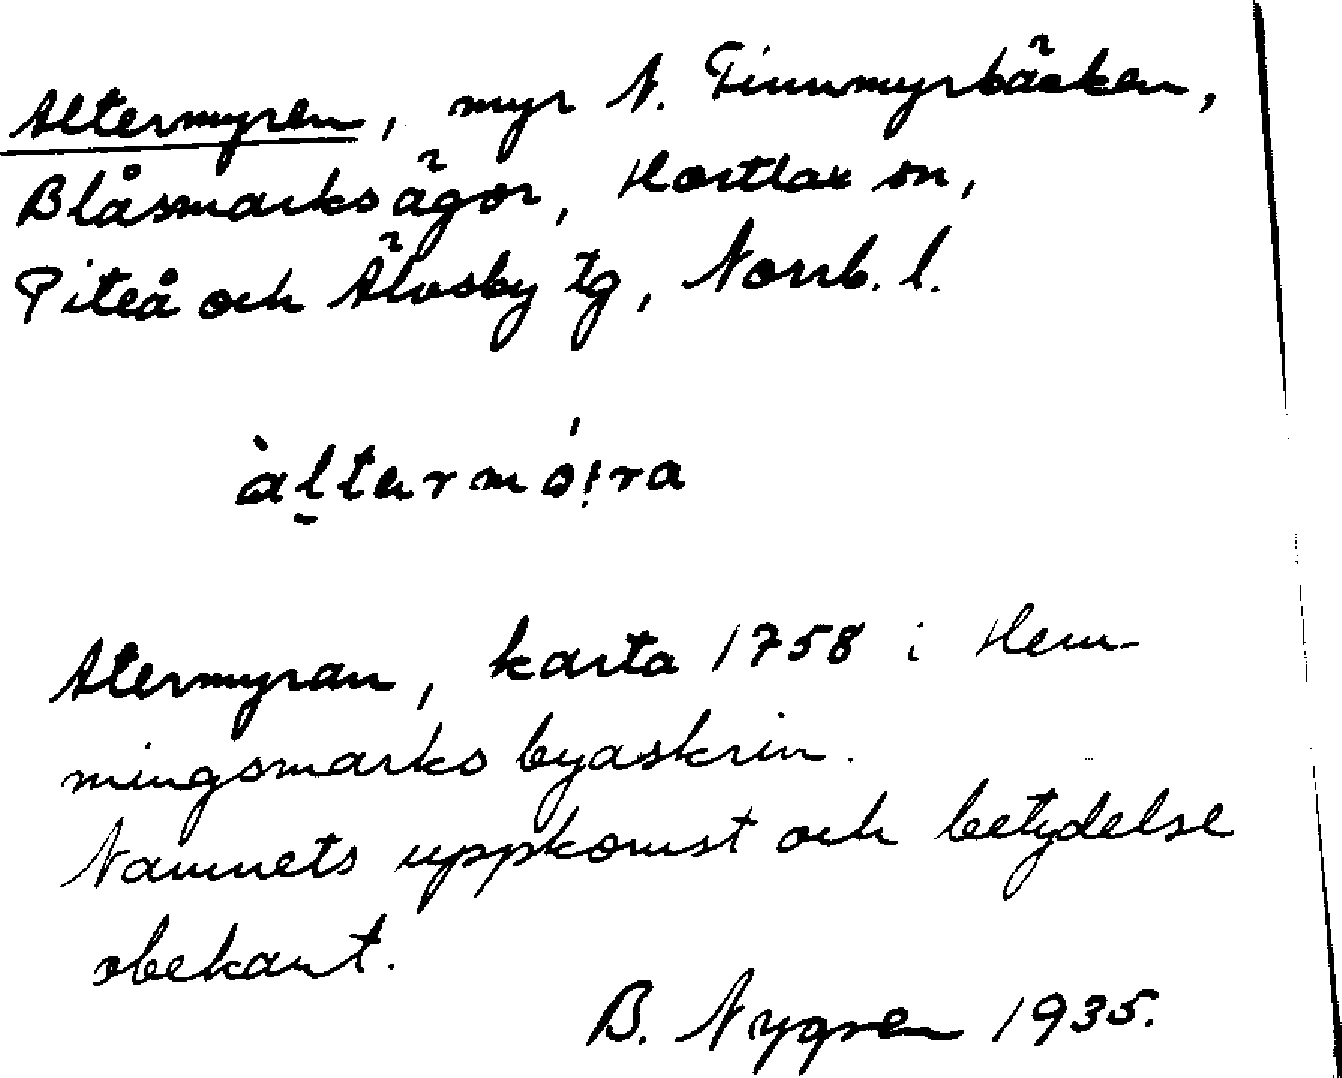 Altermyren, myr N. Finnmyrbäcken,
Blåsmarks ägor, Hortlax sn,
Piteå och Älvsby tg, Norrb. l.
àltermó!ra
Atermyran, karta 1758 i Hem-
mingsmarks byaskrin.
Namnets uppkomst och betydelse
obekant.
B. Nygren 1935.